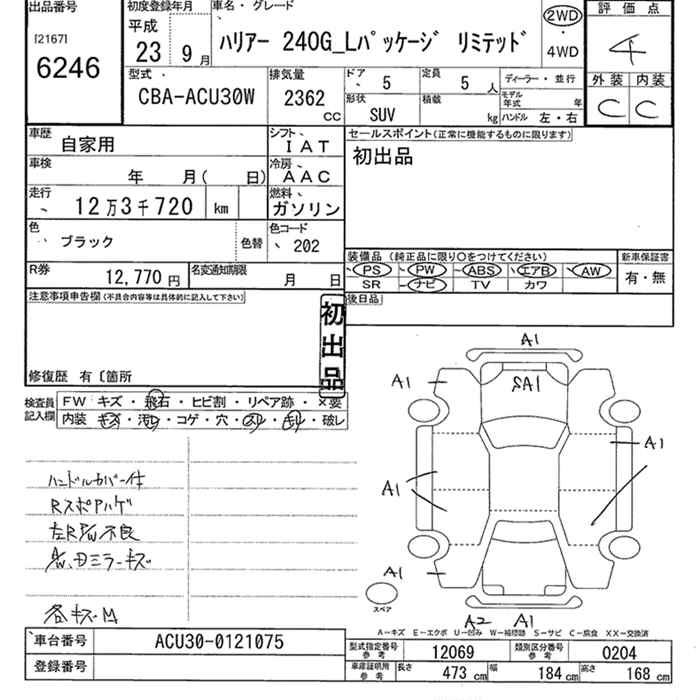 出品番号
[2167]
6246
初度登録年月
平成
23 9 月
車名・グレード
ハリアー 240G_Lパッケージ リミテッド
2WD
・
4WD
評価点
4
外装 内装
C C
型式
CBA-ACU30W
排気量
2362 CC
ドア 5
定員 5 人
形状 SUV
積載 kg
ディーラー・並行
モデル年式 年
ハンドル 左・右
車歴 自家用
シフト IAT
車検 年 月( 日)
冷房 AAC
走行 12万3千720 km
燃料 ガソリン
色 ブラック
色替
色コード 202
R券 12,770 円
名変通知期限 月 日
セールスポイント(正常に機能するものに限ります)
初出品
装備品 (純正品に限り○をつけてください)
PS PW ABS エアB AW
SR ナビ TV カワ
新車保証書
有・無
後日品
注意事項申告欄(不具合内容等は具体的に記入して下さい)
初出品
修復歴 有〔箇所
検査員記入欄
FW キズ・飛石・ヒビ割・リペア跡・×要
内装 キズ・汚レ・コゲ・穴・スレ・キレ・破レ
ハンドルカバー付
RスポAハゲ
左R P/W不良
A/W、Dミラーキズ
各キズM
A1
A1
SA1
A1
A1
A1
A2 A1
スペア
A-キズ E-エクボ U-凹み W-補修跡 S-サビ C-腐食 XX-交換済
車台番号 ACU30-0121075
登録番号
型式指定番号 参考 12069
類別区分番号 参考 0204
車庫証明用 参考 長さ 473 cm 幅 184 cm 高さ 168 cm